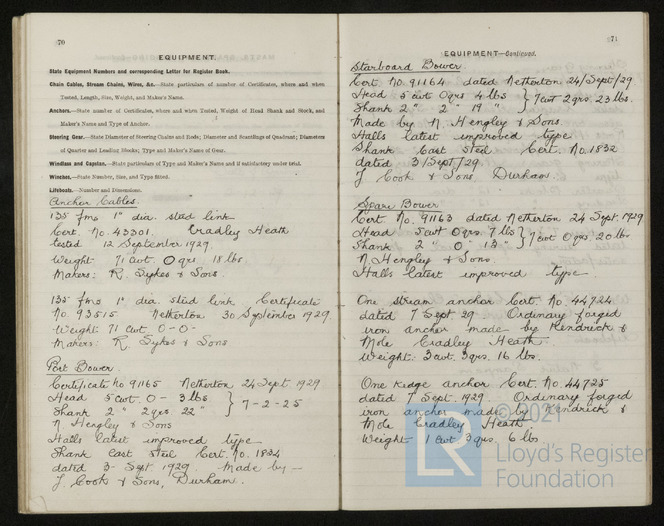 70
EQUIPMENT.
State Equipment Numbers and corresponding Letter for Register Book.
Chain Cables, Stream Chains, Wires, &c.—State particulars of number of Certificates, where and when
Tested, Length, Size, Weight, and Maker's Name.
Anchors.—State number of Certificates, where and when Tested, Weight of Head Shank and Stock, and
Maker's Name and Type of Anchor.
Steering Gear.—State Diameter of Steering Chains and Rods; Diameter and Scantlings of Quadrant; Diameters
of Quarter and Leading Blocks; Type and Maker's Name of Gear.
Windlass and Capstan.—State particulars of Type and Maker's Name and if satisfactory under total.
Winches.—State Number, Size, and Type fitted.
Lifeboats.—Number and Dimensions.
Anchor Cables.
135 fms 1" dia. stud link
Cert. No. 43301. Cradley Heath
tested 12 September 1929
Weight 71 cwt 0 qrs 18 lbs
Makers: R. Sykes & Sons.
135 fms 1" dia. stud link Certificate
No. 93515 Netherton 30 September 1929
Weight: 71 cwt. 0-0-
Makers: R. Sykes & Sons
Port Bower.
Certificate No 91165 Netherton 24 Sept. 1929
Head 5 cwt 0 - 3 lbs } 7-2-25
Shank 2 " 2 qrs 22 "
N Hengley & Sons
Halls latest improved type
Shank Cast Steel Cert. No. 1834
dated 3 Sept 1929. Made by -
J. Cook & Sons, Durham.
71
EQUIPMENT—Continued.
Starboard Bower
Cert. No. 91164 dated Netherton 24/Sept/29
Head 5 cwt 0 qrs 4 lbs } 7 cwt 2 qrs. 23 lbs.
Shank 2 " 2 " 19 "
Made by N. Hengley & Sons
Halls latest improved type
Shank Cast Steel Cert. No. 1832
dated 3/Sept/29.
J Cook & Sons Durham.
Spare Bower
Cert. No. 91163 dated Netherton 24 Sept. 1929
Head 5 cwt 0 qrs. 7 lbs } 7 cwt 0 qrs. 20 lbs.
Shank 2 " 0 " 13 "
N. Hengley & Sons
Halls latest improved type
One stream anchor Cert. No. 44724
dated 7 Sept 29 Ordinary forged
iron anchor made by Kendrick &
Mole Cradley Heath.
Weight: 3 cwt. 3 qrs. 16 lbs.
One Kedge anchor Cert. No. 44725
dated 7 Sept. 1929 Ordinary forged
iron anchor made by Kendrick &
Mole Cradley Heath
Weight 1 cwt 3 qrs. 6 lbs
© 2021
LR
Lloyd's Register
Foundation